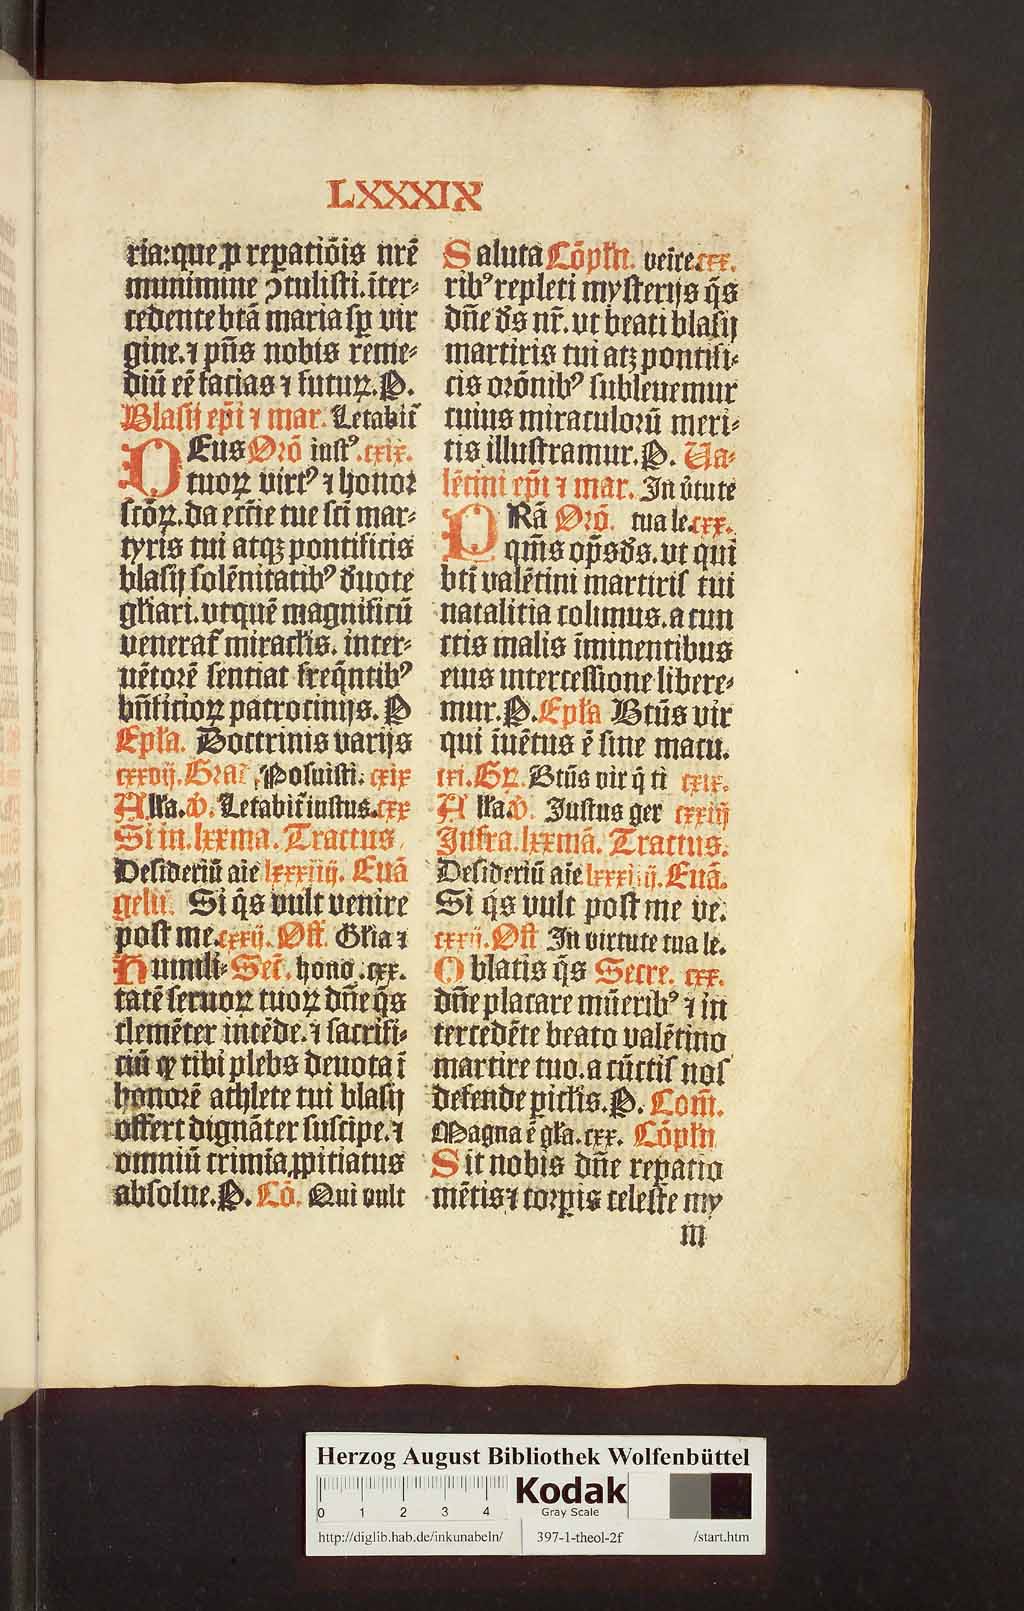 LXXXIX
ria:que ꝓ reꝑatiõis nrẽ
munimine ꝯtulisti.ĩter⸗
cedente btã maria sꝑ vir
gine.⁊ pñs nobis reme⸗
diũ eẽ facias ⁊ futuꝝ.P.
Blasij ep̃i ⁊ mar. Letabit̃
DEus Orõ iust⁹.cxix.
tuoꝝ virt⁹ ⁊ honor
sctõꝝ.da ecc̃ie tue sct̃i mar⸗
tyris tui atqꝫ pontificis
blasij solẽnitatib⁹ d̃uote
gl̃iari.vt quẽ magnificũ
venerat̃ miracl̃is. inter⸗
uẽtorẽ sentiat freq̃ntib⁹
bñficioꝝ patrocinijs. P
Epl̃a. Doctrinis varijs
cxxvij. Grat̃. Posuisti. cxix
All̃a. ℣. Letabit̃ iustus.cxx
Si in.lxxma. Tractus.
Desideriũ aĩe lxxxiiij. Euã
gelii. Si q̃s vult venire
post me.cxxij. Off. Gl̃ia ⁊
Humili⸗ Secr̃. hono .cxx.
tatẽ seruoꝝ tuoꝝ dñe q̃s
clemẽter intẽde.⁊ sacrifi⸗
ciũ qđ tibi plebs deuota ĩ
honorẽ athlete tui blasij
offert dignãter suscipe.⁊
omniũ crimĩa ꝓpitiatus
absolue.P. Cõ. Qui vult
Saluta Cõpl̃n. veĩre.cxx.
rib⁹ repleti mysterijs q̃s
dñe d̃s nr̃. vt beati blasij
martiris tui atqꝫ pontifi⸗
cis orõnib⁹ subleuemur
cuius miraculorũ meri⸗
tis illustramur.P. Ua⸗
lẽtini ep̃i ⁊ mar. In v̾tute
PRã Orõ. tua le.cxx.
qm̃s op̃s d̃s. vt qui
bti valẽtini martiris tui
natalitia colimus. a cun
ctis malis ĩminentibus
eius intercessione libere⸗
mur.P. Epl̃a Btũs vir
qui ĩuẽtus ẽ sine macu.
cxi. Gꝝ. Btũs vir q̃ ti cxix.
All̃a ℣. Iustus ger cxxiij
Infra.lxxmã. Tractus.
Desideriũ aĩe.lxxxiiij. Euã.
Si q̃s vult post me ve.
cxxii. Off In virtute tua le.
Oblatis q̃s Secre. cxx.
dñe placare mũerib⁹ ⁊ in
tercedẽte beato valẽtino
martire tuo. a cũctis nos
defende pĩcl̃is.P. Com̃.
Magna ẽ gl̃a.cxx. Cõpl̃n
Sit nobis dñe reꝑatio
mẽtis ⁊ corꝑis celeste my
m
Herzog August Bibliothek Wolfenbüttel
0 1 2 3 4
Kodak
Gray Scale
http://diglib.hab.de/inkunabeln/ 397-1-theol-2f /start.htm